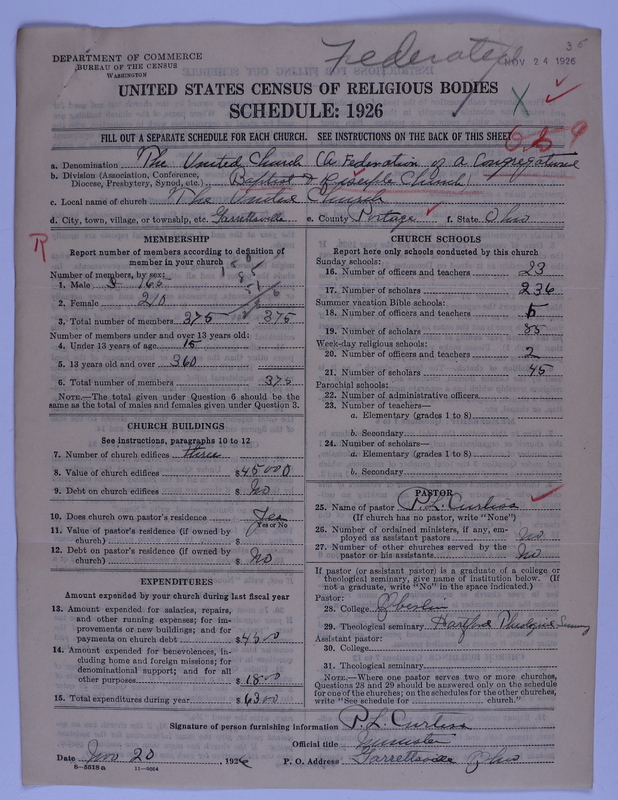 DEPARTMENT OF COMMERCE
BUREAU OF THE CENSUS
WASHINGTON
Federated
NOV 24 1926
UNITED STATES CENSUS OF RELIGIOUS BODIES
SCHEDULE: 1926
FILL OUT A SEPARATE SCHEDULE FOR EACH CHURCH. SEE INSTRUCTIONS ON THE BACK OF THIS SHEET
a. Denomination The United Church (A Federation of a Congregational
b. Division (Association, Conference,
Diocese, Presbytery, Synod, etc.) Baptist & Disciple Church)
c. Local name of church The United Church
d. City, town, village, or township, etc. Garrettsville e. County Portage f. State Ohio
R
MEMBERSHIP
Report number of members according to definition of
member in your church
Number of members, by sex:
1. Male 165
2. Female 210
3. Total number of members 375 375
Number of members under and over 13 years old:
4. Under 13 years of age 15
5. 13 years old and over 360
6. Total number of members 375
NOTE.—The total given under Question 6 should be the
same as the total of males and females given under Question 3.
CHURCH BUILDINGS
See instructions, paragraphs 10 to 12
7. Number of church edifices three
8. Value of church edifices $ 45000
9. Debt on church edifices $ No
10. Does church own pastor's residence Yes
Yes or No
11. Value of pastor's residence (if owned by
church) $
12. Debt on pastor's residence (if owned by
church) $ No
EXPENDITURES
Amount expended by your church during last fiscal year
13. Amount expended for salaries, repairs,
and other running expenses; for im-
provements or new buildings; and for
payments on church debt $ 4500
14. Amount expended for benevolences, in-
cluding home and foreign missions; for
denominational support; and for all
other purposes $ 1800
15. Total expenditures during year $ 6300
CHURCH SCHOOLS
Report here only schools conducted by this church
Sunday schools:
16. Number of officers and teachers 23
17. Number of scholars 236
Summer vacation Bible schools:
18. Number of officers and teachers 5
19. Number of scholars 85
Week-day religious schools:
20. Number of officers and teachers 2
21. Number of scholars 45
Parochial schools:
22. Number of administrative officers
23. Number of teachers—
a. Elementary (grades 1 to 8)
b. Secondary
24. Number of scholars—
a. Elementary (grades 1 to 8)
b. Secondary
PASTOR
25. Name of pastor P. L. Curtiss
(If church has no pastor, write "None")
26. Number of ordained ministers, if any, em-
ployed as assistant pastors No
27. Number of other churches served by the
pastor or his assistants No
If pastor (or assistant pastor) is a graduate of a college or
theological seminary, give name of institution below. (If
not a graduate, write "No" in the space indicated.)
Pastor:
28. College Oberlin
29. Theological seminary Hartford Theological Seminary
Assistant pastor:
30. College
31. Theological seminary
NOTE.—Where one pastor serves two or more churches,
Questions 28 and 29 should be answered only on the schedule
for one of the churches; on the schedules for the other churches,
write "See schedule for church."
Signature of person furnishing information P. L. Curtiss
Official title Minister
Date Nov 20 1926 P. O. Address Garrettsville Ohio
8—5518a 11—9064